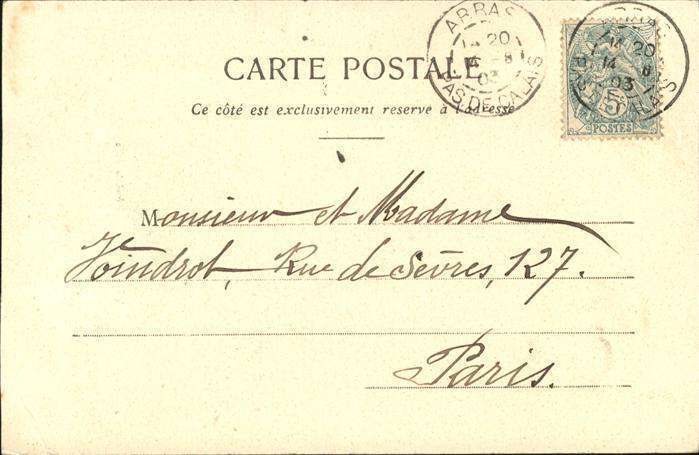 ARRAS
20
14 8
03
PAS DE CALAIS
ARRAS
20
14 8
03
PAS DE CALAIS
5
POSTES
CARTE POSTALE
Ce côté est exclusivement reserve à l'adresse
Monsieur et Madame
Voindrot, Rue de Sèvres, 127.
Paris.